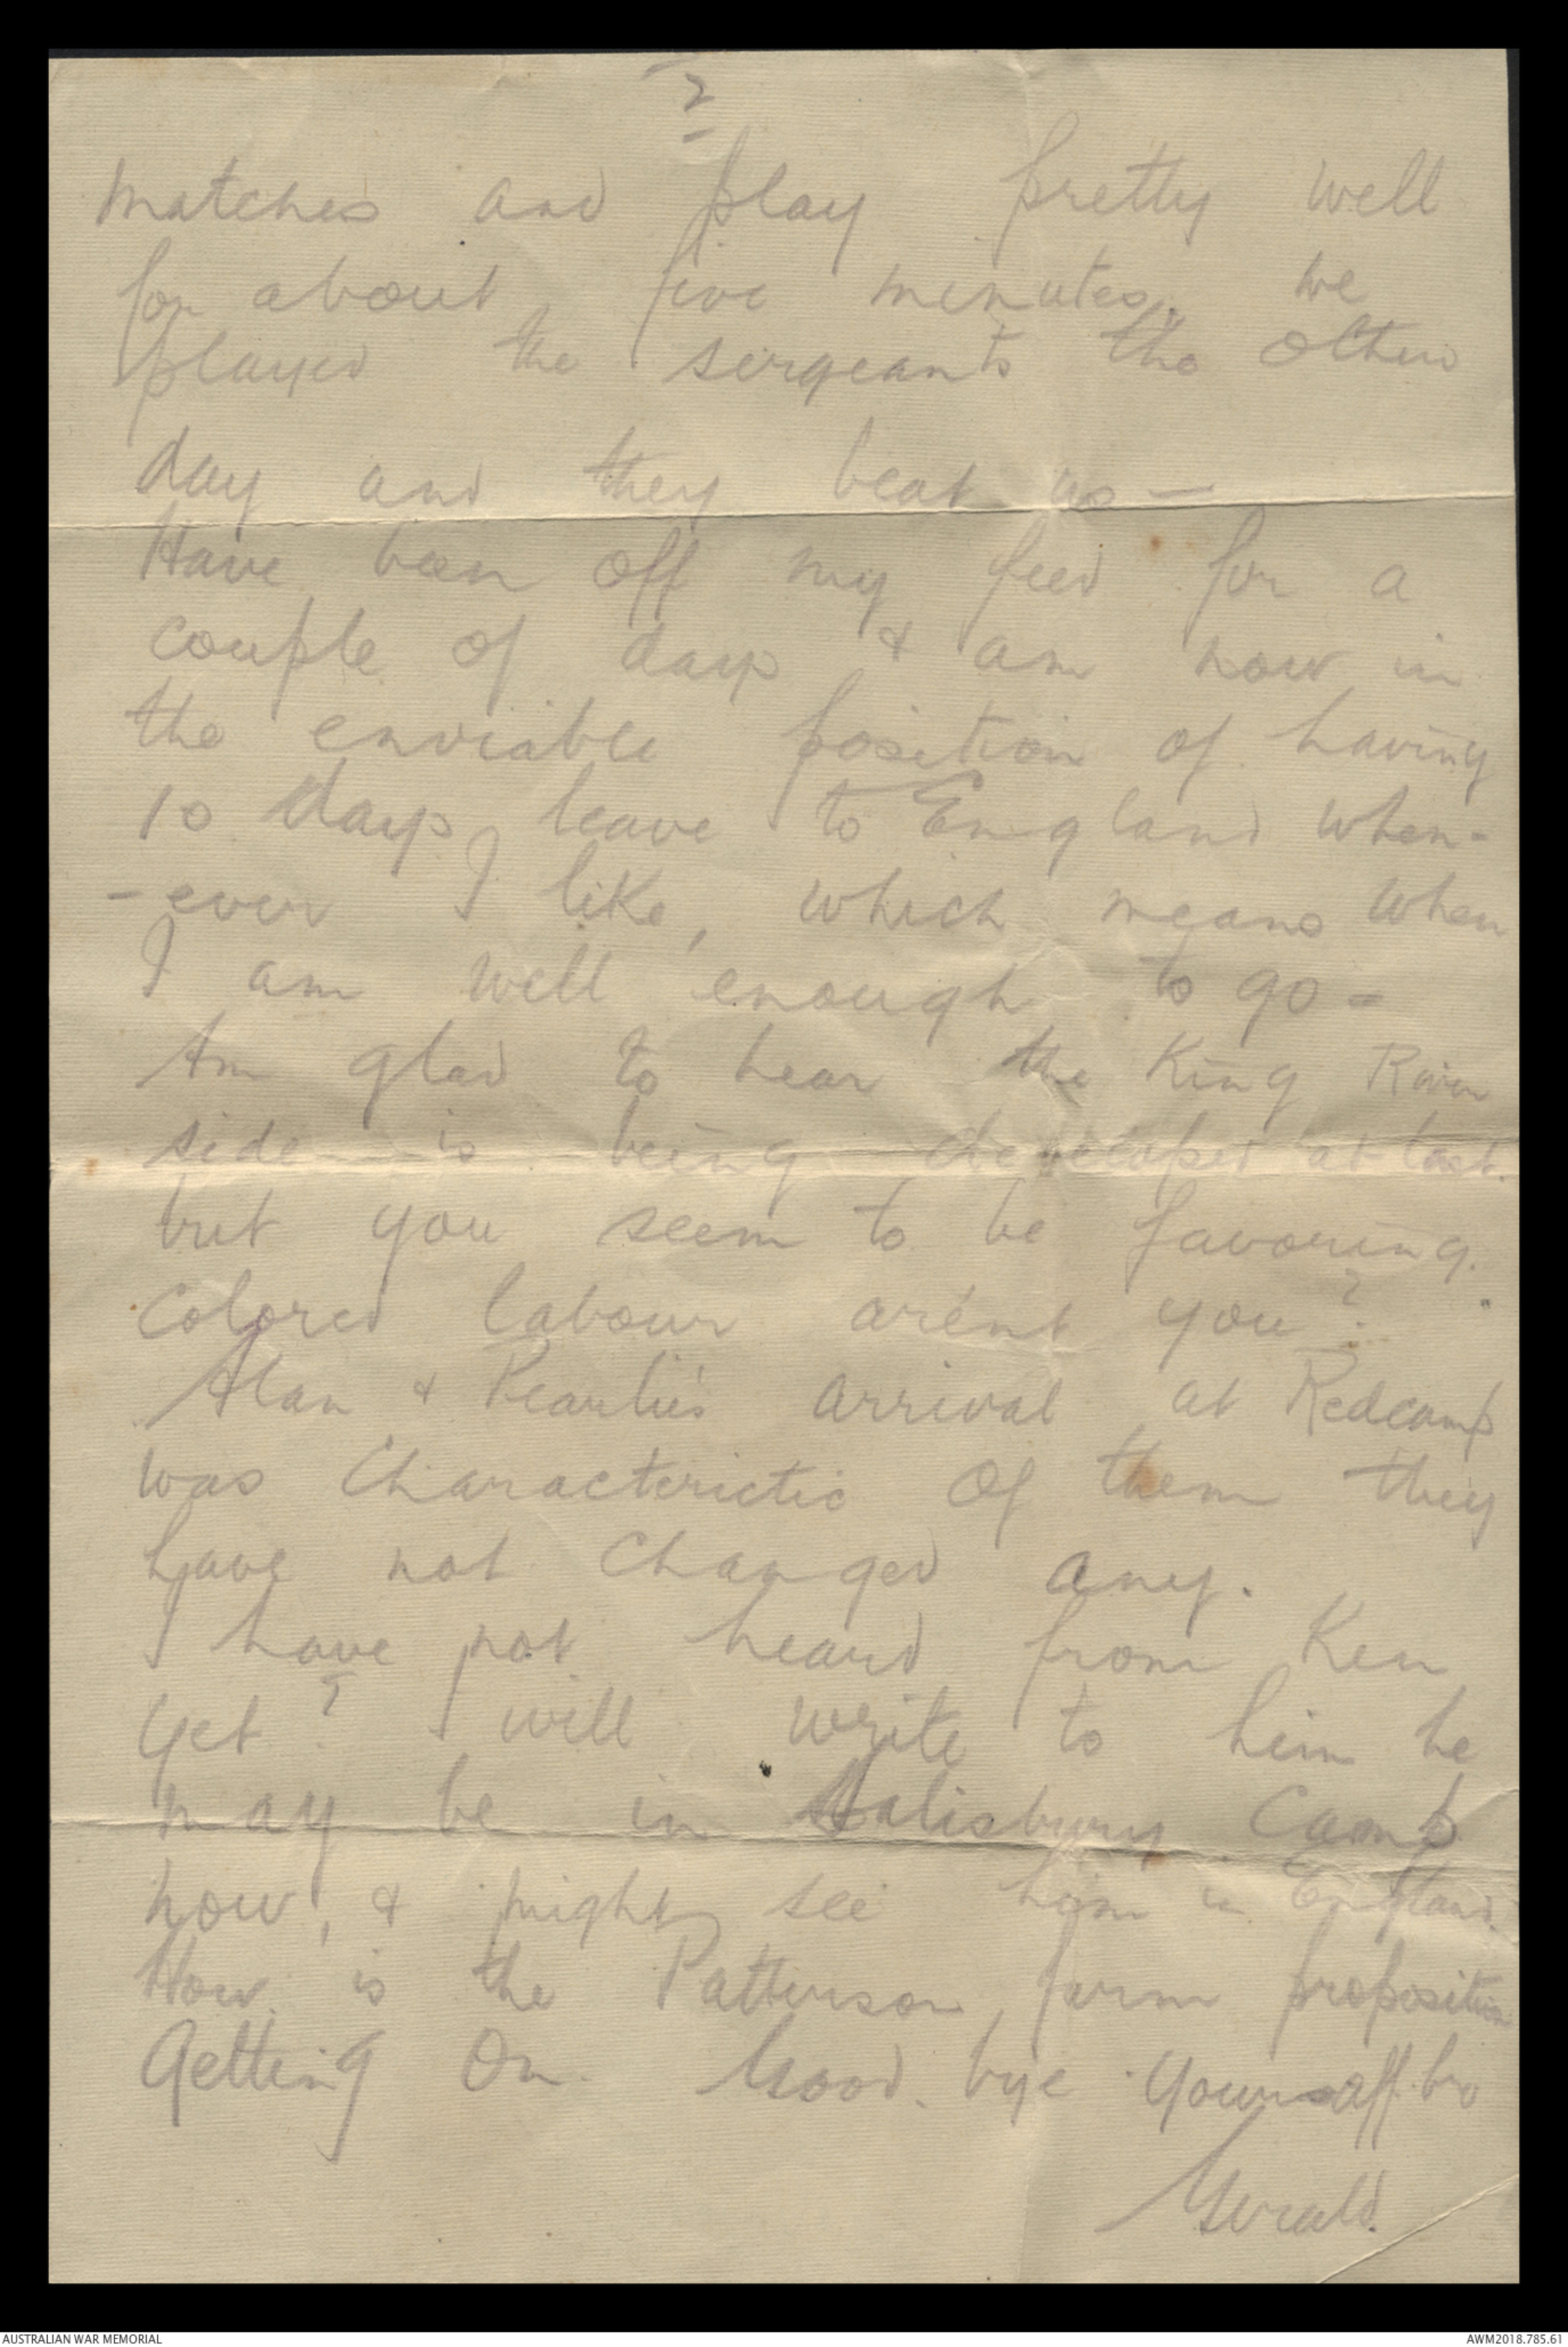 2
matches and play pretty well
for about five minutes. We
played the sergeants the other
day and they beat us —
Have been off my feed for a
couple of days & am now in
the enviable position of having
10 days leave to England when-
-ever I like, which means when
I am well enough to go -
Am glad to hear the King River
side is being developed at last.
but you seem to be favoring.
Colored labour are'nt you?
Alan & Pearlie's arrival at Redcamp
was Characteristic Of them they
have not Changed any.
I have not heard from Ken
yet? will write to him he
may be in Salisbury Camp
now, & might see him in England.
How is the Patterson farm proposition
Getting On. Good. bye Yours aff. bro
Gerald.
AUSTRALIAN WAR MEMORIAL
AWM2018.785.61